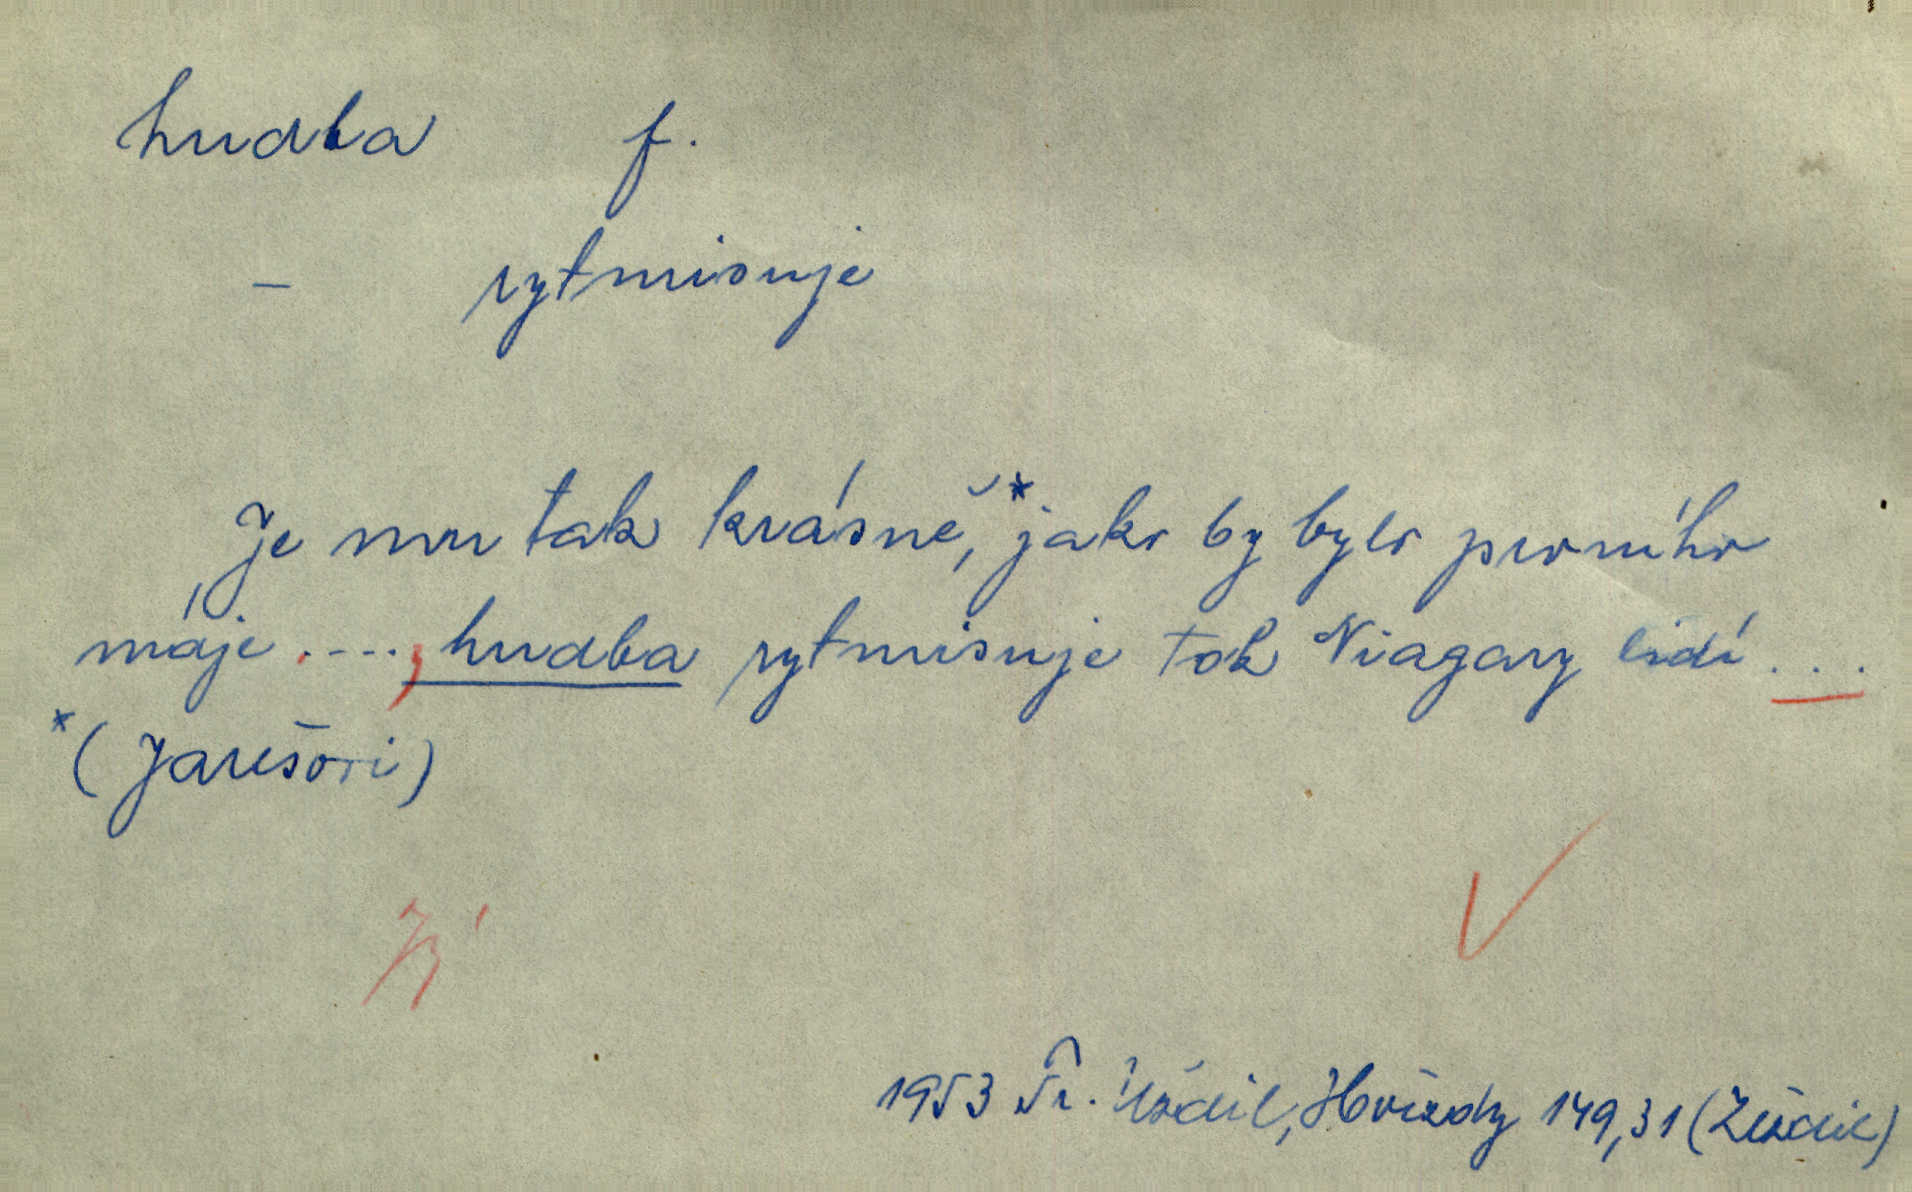 hudba f.
– rytmisuje
Je mu tak krásně,* jako by bylo prvního
máje ...., hudba rytmisuje tok Niagary lidí ...
*(Jarešovi)
1953 Fr. Hvězdy 149,31 (